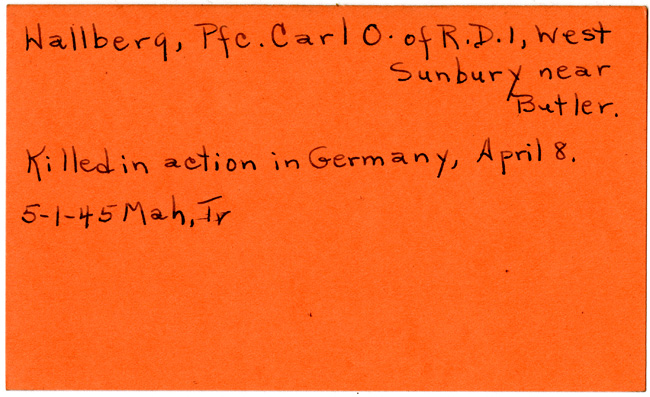 Wallberg, Pfc. Carl O. of R.D.1, West
Sunbury near
Butler.
Killed in action in Germany, April 8.
5-1-45 Mah, Tr